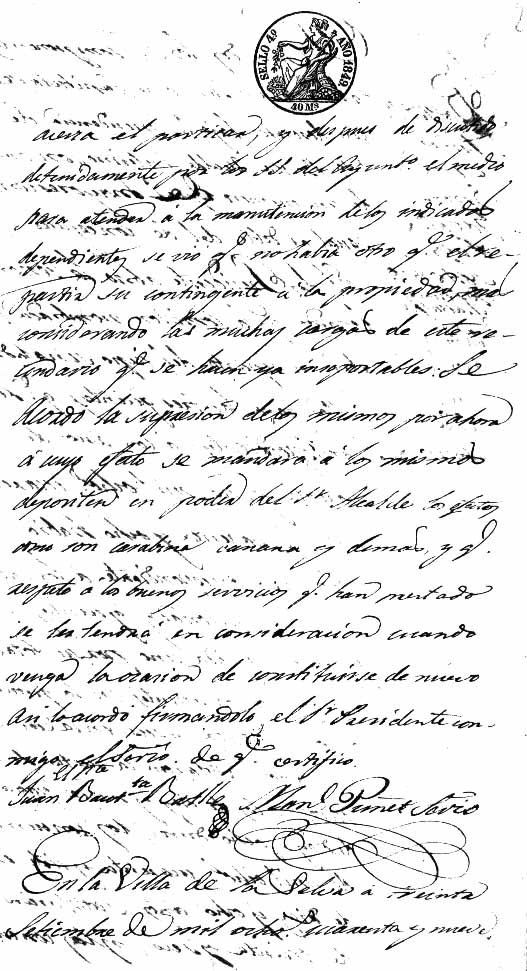 SELLO 4º AÑO 1849
40 Ms
acerca el particular, y despues de discutido
detenidamente por los SS. del Ayunto. el medio
para atender a la manutencion de los indicados
dependientes se vio q.e no habia otro q.e el re-
partir su contingente a la propiedad, mas
considerando las muchas cargas de este ve-
cindario q.e se hacen ya insoportables. Se
Acordó la supresion de los mismos por ahora
á cuyo efeto se mandara á los mismos
depositen en poder del Sr. Alcalde los efetos
como son carabina canana y demas, y q.e
respeto a los buenos servicios q.e han prestado
se les tendra en consideracion cuando
venga la ocasion de constituirse de nuevo
Asi lo acordo firmandolo el Sr. Presidente con-
migo el Srio. de q.e certifico.
El Pte
Juan Bauta Batlle Man.l Punet Srio
En la Villa de la Selva a treinta
Setiembre de mil ocho. cuarenta y nueve